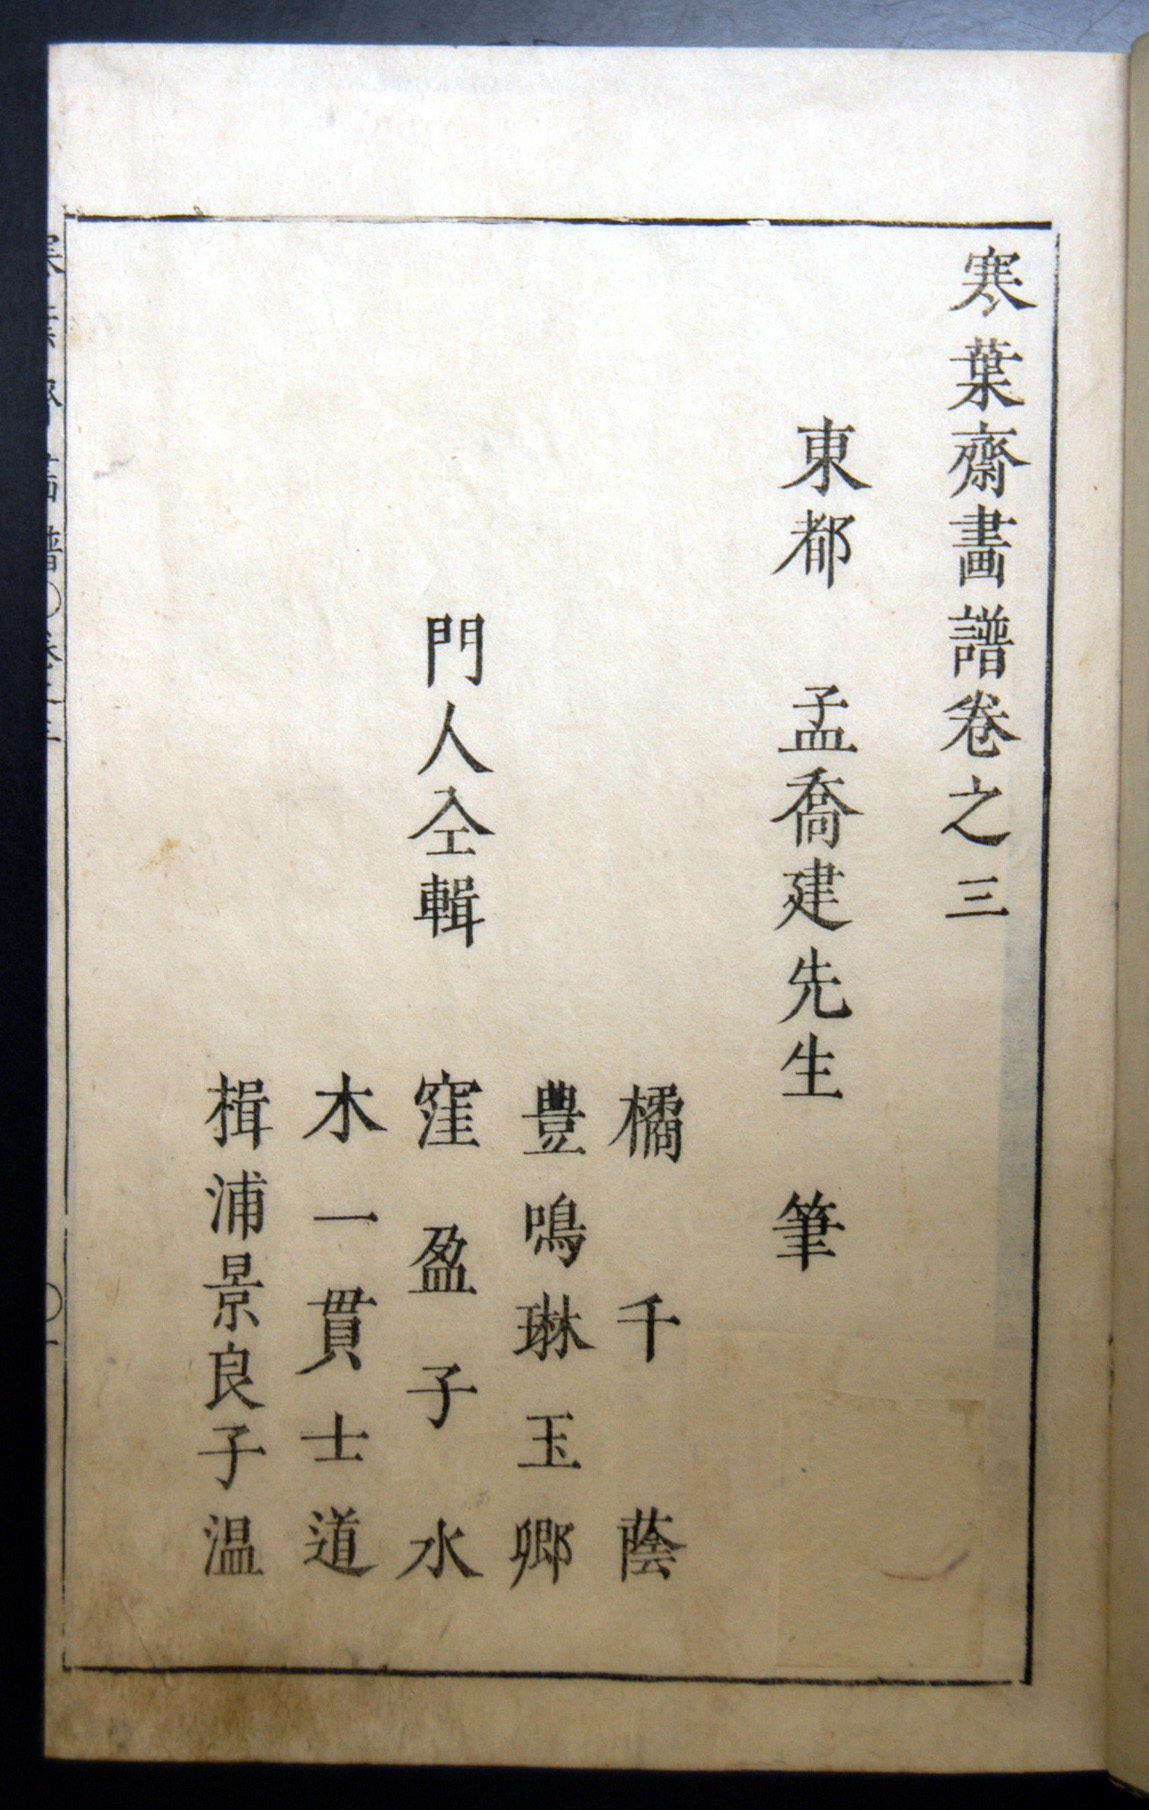 寒葉齋畵譜卷之三
東都　孟喬建先生　筆
橘千蔭
豊鳴琳玉卿
門人仝輯　窪盈子水
木一貫士道
楫浦景良子温